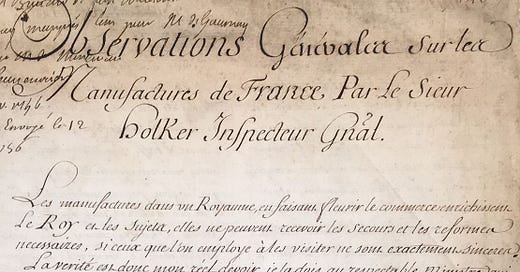 pour M. De Gournay
Observations Générales sur les
Manufactures de France, Par Le Sieur
Holker Inspecteur Gnãl.
Envoyé le 12
Les manufactures dans un Royaume, en faisant fleurir le commerce enrichissent
Le Roy et les Sujets, elles ne peuvent recevoir les secours et les reformes
necessaires, si ceux que l'on employe à les visiter ne sont exactement sinceres
La verité est donc mon réel devoir, je la dois au respectable